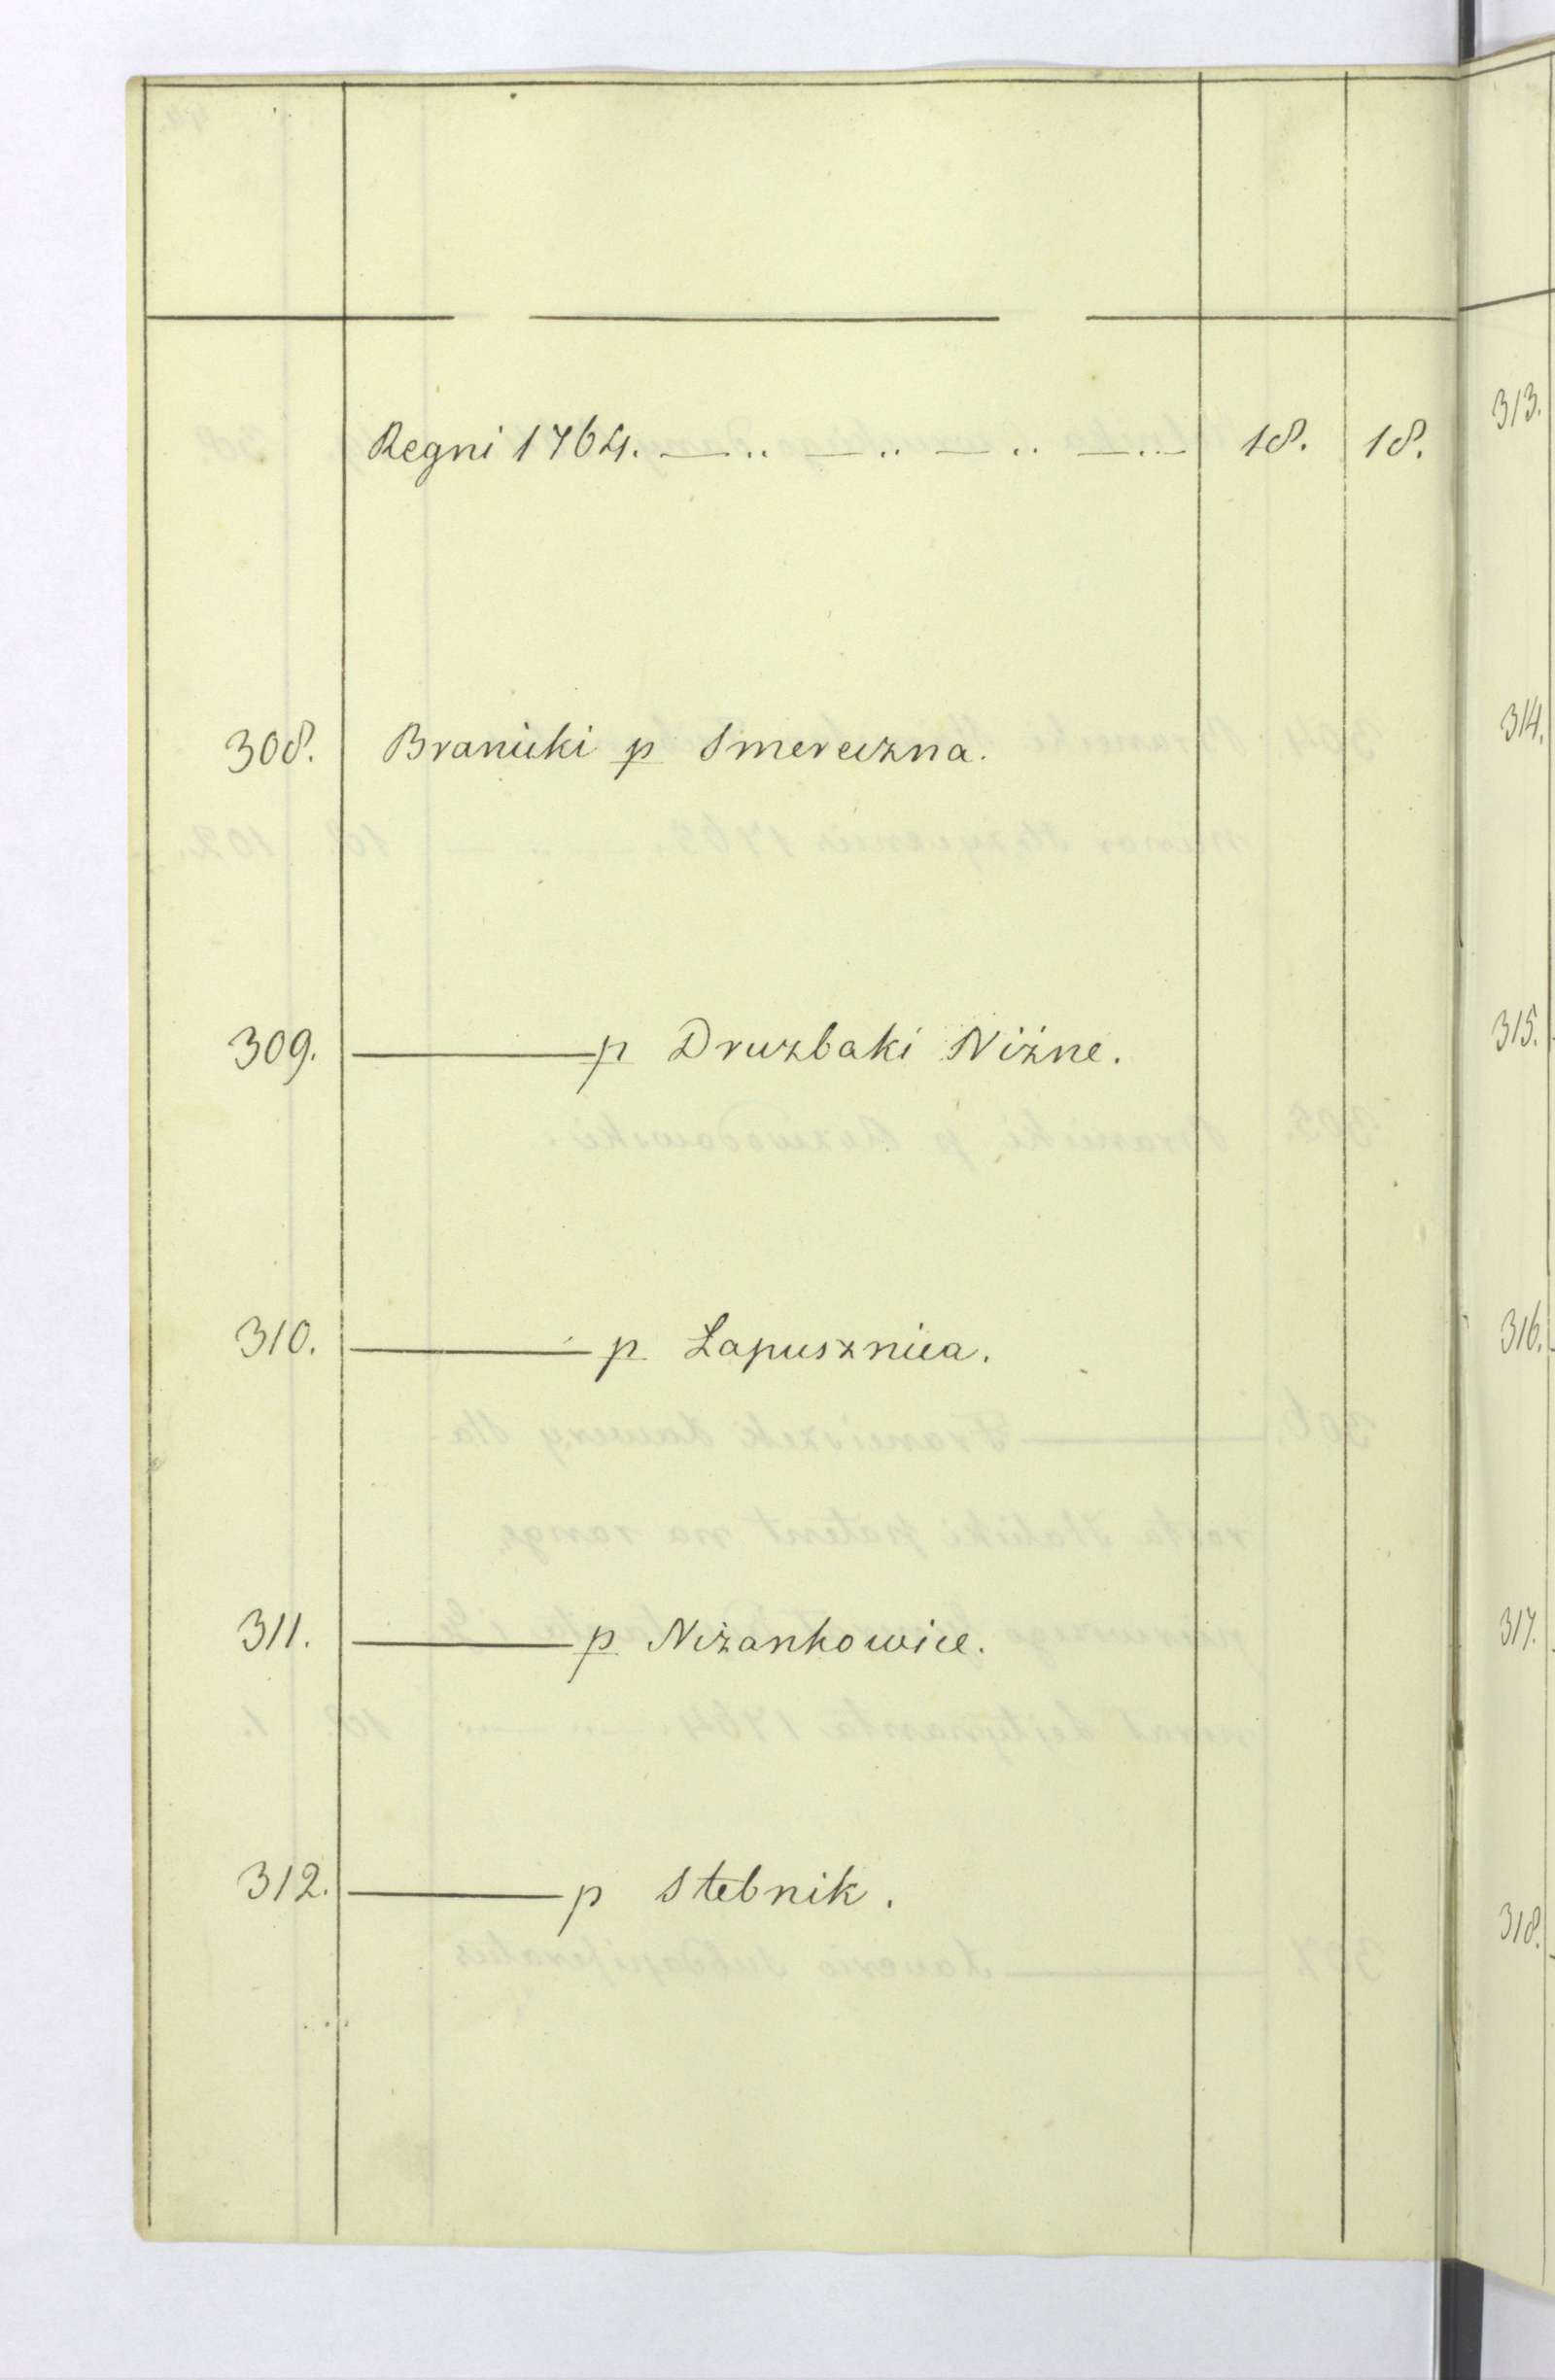 Regni 1764. —.. —.. —.. —.. 18. 18.
308. Branicki p Smereczna.
309. ——— p Druzbaki Niżne.
310. ——— p Łapusznica.
311. ——— p Niżankowice.
312. ——— p Stebnik.
313.
314.
315.
316.
317.
318.